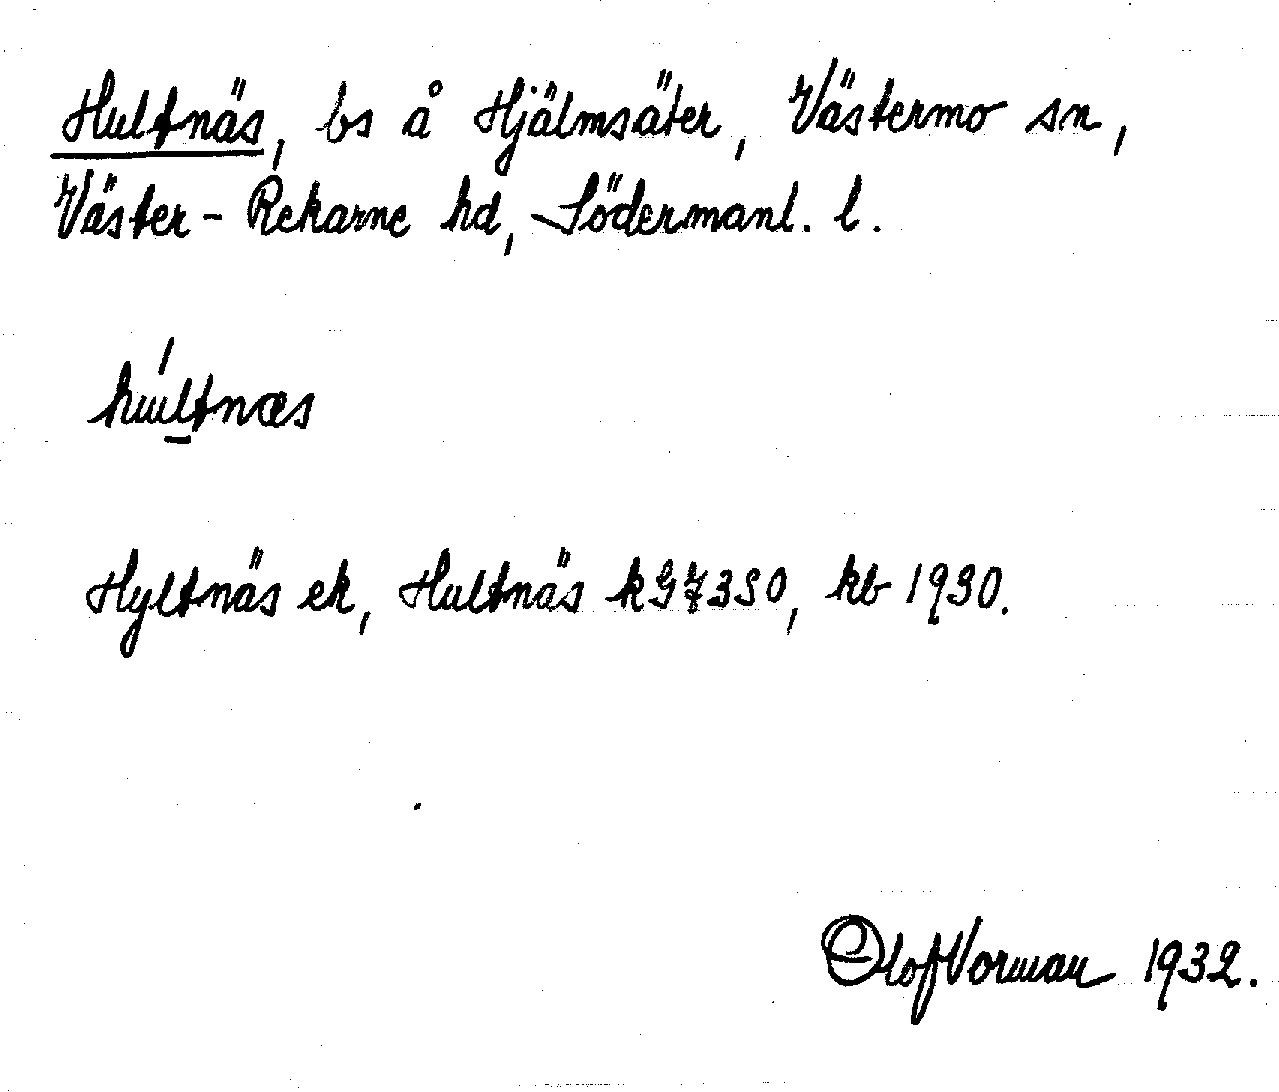 Hultnäs, bs å Hjälmsäter, Västermo sn,
Väster-Rekarne hd, Södermanl. l.
hultnæs
Hyltnäs ek, Hultnäs kG7330, kb 1930.
Olof Vorman 1932.